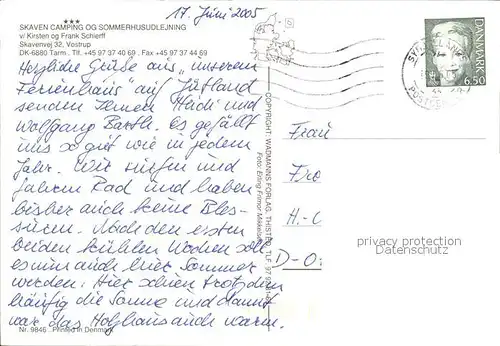 17. Juni 2005
★★★
SKAVEN CAMPING OG SOMMERHUSUDLEJNING
v/ Kirsten og Frank Schierff
Skavenvej 32, Vostrup
DK-6880 Tarm . Tlf. +45 97 37 40 69 . Fax +45 97 37 44 69
Herzliche Grüße aus "unserem
Ferienhaus" auf Jütland
senden Ihnen Heidi und
Wolfgang Barth. Es gefällt
uns so gut wie in jedem
Jahr. Wir surfen und
fahren Rad und haben
bisher auch keine Bles-
suren. Nach den ersten
beiden kühlen Wochen soll
es nun auch hier Sommer
werden. Hier schien trotzdem
häufig die Sonne und damit
war das Holzhaus auch warm.
Nr. 9846 Printed in Denmark
COPYRIGHT: WADMANNS FORLAG, THISTED, TLF. 97 9
Foto: Erling Frimor Mikkelsen
DANMARK
6.50
Frau
Fro
H.-C
D-O
privacy protection
Datenschutz